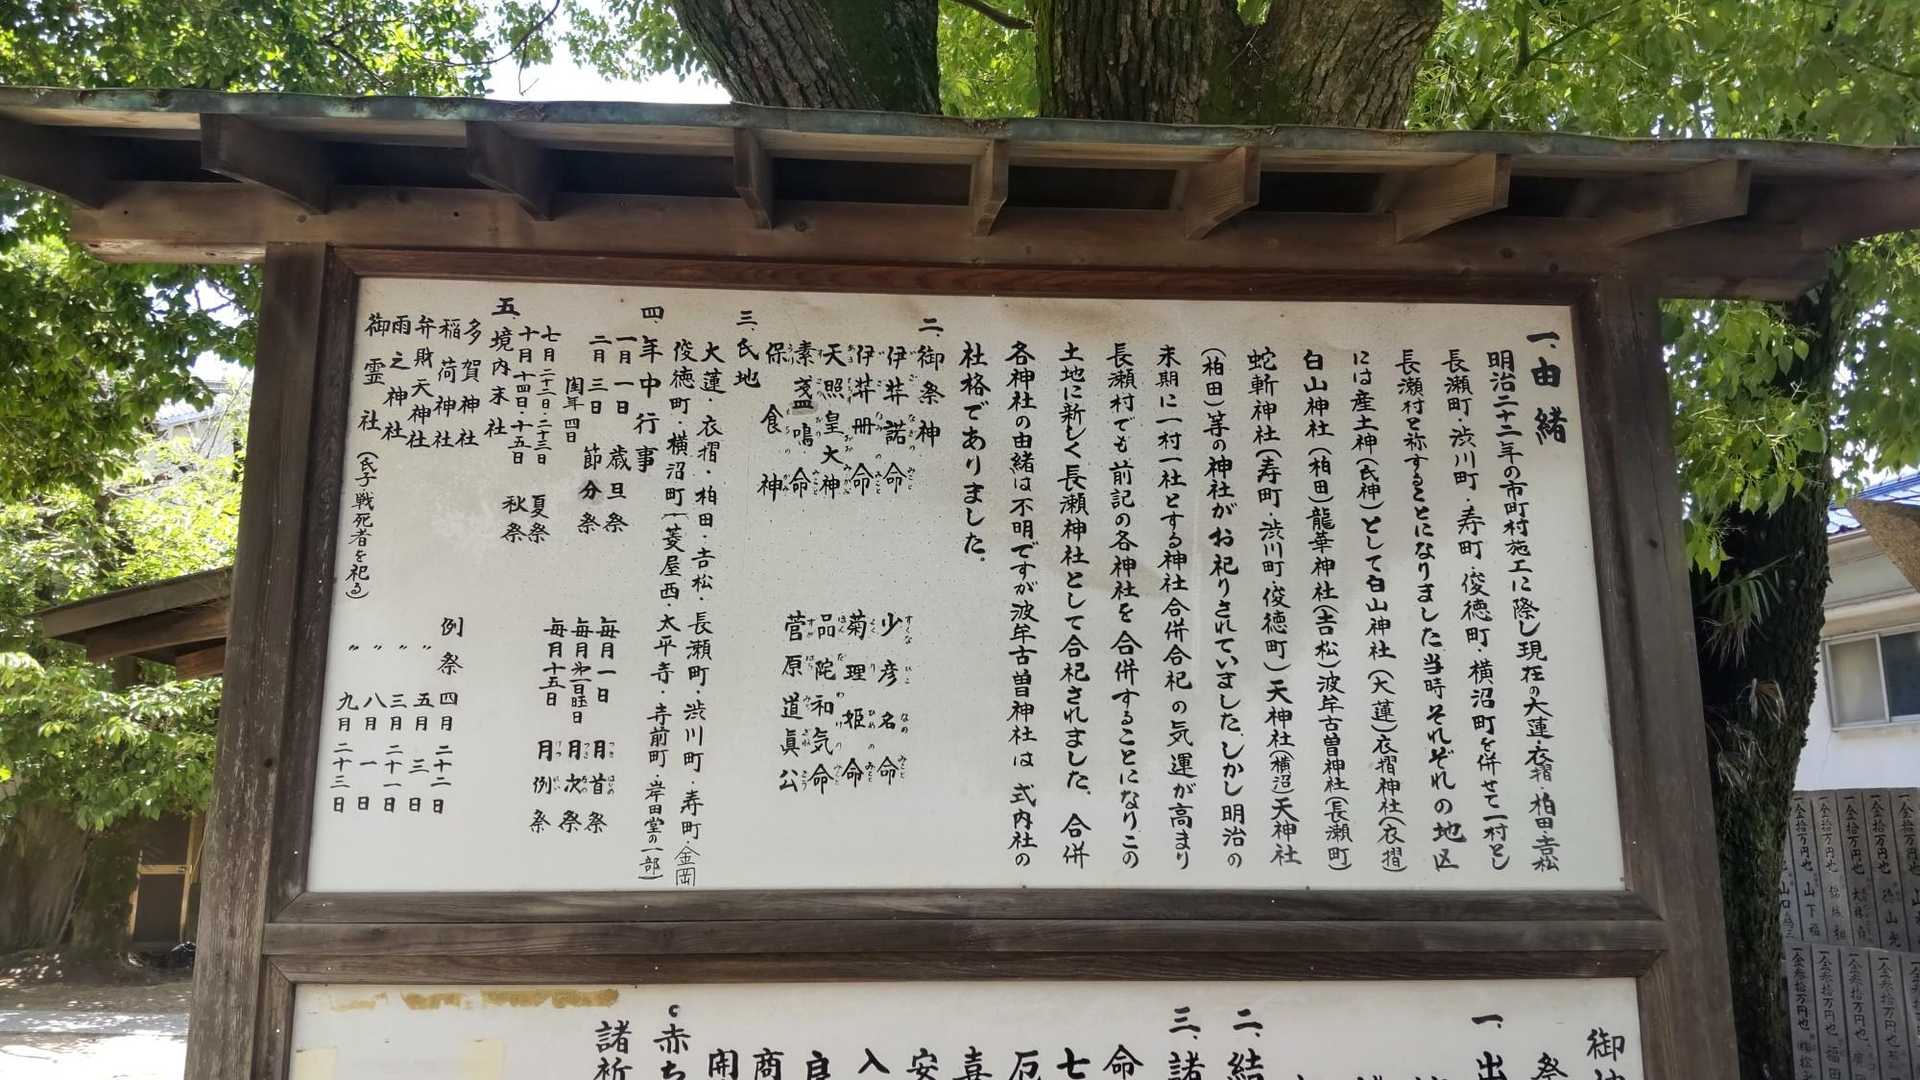 一、由緒
明治二十二年の市町村施工に際し現在の大蓮・衣摺・柏田・吉松
長瀬町・渋川町・寿町・俊徳町・横沼町を併せて一村とし
長瀬村と称することになりました。当時それぞれの地区
には産土神(氏神)として白山神社(大蓮)衣摺神社(衣摺)
白山神社(柏田)龍華神社(吉松)波牟古曽神社(長瀬町)
蛇斬神社(寿町・渋川町・俊徳町)天神社(横沼)天神社
(柏田)等の神社がお祀りされていました。しかし明治の
末期に一村一社とする神社合併合祀の気運が高まり
長瀬村でも前記の各神社を合併することになりこの
土地に新しく長瀬神社として合祀されました。合併
各神社の由緒は不明ですが波牟古曽神社は式内社の
社格でありました。
二、御祭神
伊弉諾命 少彦名命
伊弉冊命 菊理姫命
天照皇大神 品陀和気命
素盞嗚命 菅原道眞公
保食神
三、氏地
大蓮・衣摺・柏田・吉松・長瀬町・渋川町・寿町・金岡
俊徳町・横沼町(菱屋西・太平寺・寺前町・岸田堂の一部)
四、年中行事
一月一日 歳旦祭 毎月一日 月首祭
二月三日 節分祭 毎月第一日曜日 月次祭
閏年四日 毎月十五日 月例祭
七月二十二日・二十三日 夏祭
十月十四日・十五日 秋祭
五、境内末社
多賀神社 例祭 四月二十二日
稲荷神社 〃 五月三日
弁財天神社 〃 三月二十一日
雨之神社 〃 八月一日
御霊社(氏子・戦死者を祀る) 〃 九月二十三日
御
祭
一、出
二、結
三、諸
命
七
厄
喜
安
入
良
商
開
赤ち
諸祈